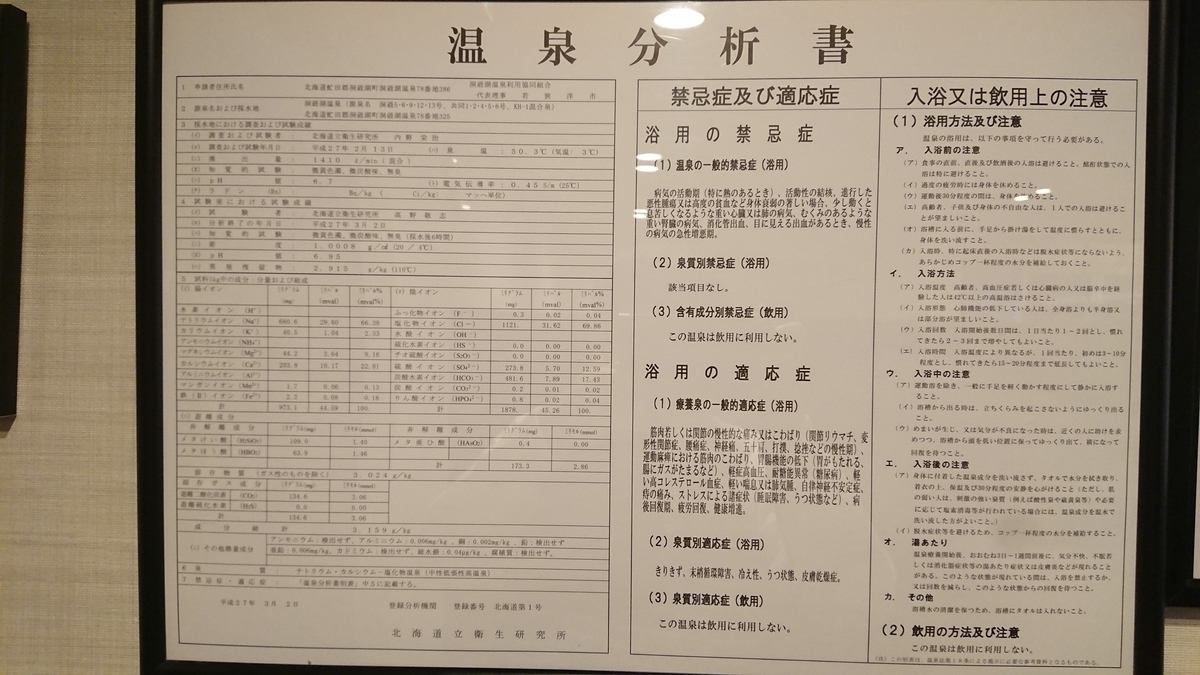 温泉分析書
1 申請者住所氏名 北海道虻田郡洞爺湖町洞爺湖温泉78番地286 洞爺湖温泉利用協同組合
代表理事 若狭洋市
2 源泉名および採水地 洞爺湖温泉
北海道虻田郡洞爺湖町洞爺湖温泉78番地325
3 採水地における調査および試験成績
(イ) 調査および試験者 : 北海道立衛生研究所 内野栄治
(ロ) 調査および試験年月日 : 平成27年2月13日 (ハ) 泉温 : 50.3℃(気温: 3℃)
(ニ) 湧出量 : 1410 ℓ/min (混合)
(ホ) 知覚的試験 : 微黄色濁、微炭酸味、無臭
(ヘ) pH値 : 6.7 (ト) 電気伝導率 : 0.45 S/m (25℃)
(チ) ラドン (Rn) : Bq/kg ( Ci/kg; マッヘ単位)
4 試験室における試験成績
(イ) 試験者 : 北海道立衛生研究所 高野敬志
(ロ) 分析終了の年月日 : 平成27年3月2日
(ハ) 知覚的試験 : 微黄色濁、微炭酸味、無臭 (採水後6時間)
(ニ) 密度 : 1.0008 g/c㎥ (20/4℃)
(ホ) pH値 : 6.95
(ヘ) 蒸発残留物 : 2.915 g/kg (110℃)
5 試料1kg中の成分・分量および組成
(イ) 陽イオン ミリグラム(mg) ミリバル(mval) ミリバル%(mval%)
水素イオン (H⁺)
ナトリウムイオン (Na⁺) 680.6 29.60 66.39
カリウムイオン (K⁺) 40.5 1.04 2.33
アンモニウムイオン (NH₄⁺)
マグネシウムイオン (Mg²⁺) 44.2 3.64 8.16
カルシウムイオン (Ca²⁺) 203.8 10.17 22.81
アルミニウムイオン (Al³⁺)
マンガンイオン (Mn²⁺) 1.7 0.06 0.13
鉄(Ⅱ)イオン (Fe²⁺) 2.2 0.08 0.18
計 973.1 44.59 100.
(ロ) 陰イオン ミリグラム(mg) ミリバル(mval) ミリバル%(mval%)
ふっ化物イオン (F⁻) 0.3 0.02 0.04
塩化物イオン (Cl⁻) 1121. 31.62 69.86
水酸イオン (OH⁻)
硫化水素イオン (HS⁻) 0.0 0.00 0.00
チオ硫酸イオン (S₂O₃²⁻) 0.0 0.00 0.00
硫酸イオン (SO₄²⁻) 273.8 5.70 12.59
炭酸水素イオン (HCO₃⁻) 481.6 7.89 17.43
炭酸イオン (CO₃²⁻) 0.2 0.01 0.02
りん酸イオン (HPO₄²⁻) 0.8 0.02 0.04
計 1878. 45.26 100.
(ハ) 遊離成分
非解離成分 ミリグラム(mg) ミリモル(mmol) 非解離成分 ミリグラム(mg) ミリモル(mmol)
メタけい酸 (H₂SiO₃) 109.0 1.40 メタ亜ひ酸 (HAsO₂) 0.4 0.00
メタほう酸 (HBO₂) 63.9 1.46
計 173.3 2.86
溶存物質 (ガス性のものを除く) 3.024 g/kg
溶存ガス成分 ミリグラム(mg) ミリモル(mmol)
遊離二酸化炭素 (CO₂) 134.6 3.06
遊離硫化水素 (H₂S) 0.0 0.00
計 134.6 3.06
成分総計 3.159 g/kg
(ニ) その他微量成分 アンモニウム:検出せず、アルミニウム:0.006mg/kg、銅:0.002mg/kg、鉛:検出せず
亜鉛:0.006mg/kg、カドミウム:検出せず、総水銀:0.04μg/kg、腐植質:検出せず。
6 泉質 : ナトリウム・カルシウム−塩化物温泉 (中性低張性高温泉)
7 禁忌症・適応症 : 「温泉分析書別表」中5に記載する。
平成27年 3月 2日 登録分析機関 登録番号 北海道第1号
北海道立衛生研究所
禁忌症及び適応症
浴用の禁忌症
(1) 温泉の一般的禁忌症(浴用)
病気の活動期(特に熱のあるとき)、活動性の結核、進行した
悪性腫瘍又は高度の貧血など身体衰弱の著しい場合、少し動くと
息苦しくなるような重い心臓又は肺の病気、むくみのあるような
重い腎臓の病気、消化管出血、目に見える出血があるとき、慢性
の病気の急性増悪期。
(2) 泉質別禁忌症(浴用)
該当項目なし。
(3) 含有成分別禁忌症(飲用)
この温泉は飲用に利用しない。
浴用の適応症
(1) 療養泉の一般的適応症(浴用)
筋肉若しくは関節の慢性的な痛み又はこわばり(関節リウマチ、変
形性関節症、腰痛症、神経痛、五十肩、打撲、捻挫などの慢性期)、
運動麻痺における筋肉のこわばり、胃腸機能の低下(胃がもたれる、
腸にガスがたまるなど)、軽症高血圧、耐糖能異常(糖尿病)、軽
い高コレステロール血症、軽い喘息又は肺気腫、自律神経不安定症、
痔の痛み、ストレスによる諸症状(睡眠障害、うつ状態など)、病
後回復期、疲労回復、健康増進。
(2) 泉質別適応症(浴用)
きりきず、末梢循環障害、冷え性、うつ状態、皮膚乾燥症。
(3) 泉質別適応症(飲用)
この温泉は飲用に利用しない。
入浴又は飲用上の注意
(1) 浴用方法及び注意
温泉の浴用は、以下の事項を守って行う必要がある。
ア. 入浴前の注意
(ア) 食事の直前、直後及び飲酒後の入浴は避けること。酩酊状態での入
浴は特に避けること。
(イ) 過度の疲労時には身体を休めること。
(ウ) 運動後30分程度の間は、身体を休めること。
(エ) 高齢者、子供及び身体の不自由な人は、1人での入浴は避けるこ
とが望ましいこと。
(オ) 浴槽に入る前に、手足から掛け湯をして温度に慣らすとともに、
身体を洗い流すこと。
(カ) 入浴時、特に起床直後の入浴時などは脱水症状等にならないよう、
あらかじめコップ一杯程度の水分を補給しておくこと。
イ. 入浴方法
(ア) 入浴温度 高齢者、高血圧症若しくは心臓病の人又は脳卒中を経
験した人は42℃以上の高温浴はさけること。
(イ) 入浴形態 心肺機能の低下している人は、全身浴よりも半身浴又
は部分浴が望ましいこと。
(ウ) 入浴回数 入浴開始後数日間は、1日当たり1~2回とし、慣れ
てきたら2~3回まで増やしてもよいこと。
(エ) 入浴時間 入浴温度により異なるが、1回当たり、初めは3~10分
程度とし、慣れてきたら15~20分程度まで延長してもよいこと。
ウ. 入浴中の注意
(ア) 運動浴を除き、一般に手足を軽く動かす程度にして静かに入浴す
ること。
(イ) 浴槽から出る時は、立ちくらみを起こさないようにゆっくり出る
こと。
(ウ) めまいが生じ、又は気分が不良になった時は、近くの人に助けを求
めつつ、浴槽から頭を低い位置に保ってゆっくり出て、横になって
回復を待つこと。
エ. 入浴後の注意
(ア) 身体に付着した温泉成分を洗い流さず、タオルで水分を拭き取り、
着衣の上、保温及び30分程度の安静を心がけること(ただし、肌
の弱い人は、刺激の強い泉質(例えば酸性泉や硫黄泉等)や必要
に応じて塩素消毒等が行われている場合には、温泉成分を温水で
洗い流した方がよいこと。)
(イ) 脱水症状等を避けるため、コップ一杯程度の水分を補給すること。
オ. 湯あたり
温泉療養開始後、おおむね3日~1週間前後に、気分不快、不眠若
しくは消化器症状等の湯あたり症状又は皮膚炎などが現れること
がある。このような状態が現れている間は、入浴を中止するか、
又は回数を減らし、このような状態からの回復を待つこと。
カ. その他
浴槽水の清潔を保つため、浴槽にタオルは入れないこと。
(2) 飲用の方法及び注意
この温泉は飲用に利用しない。